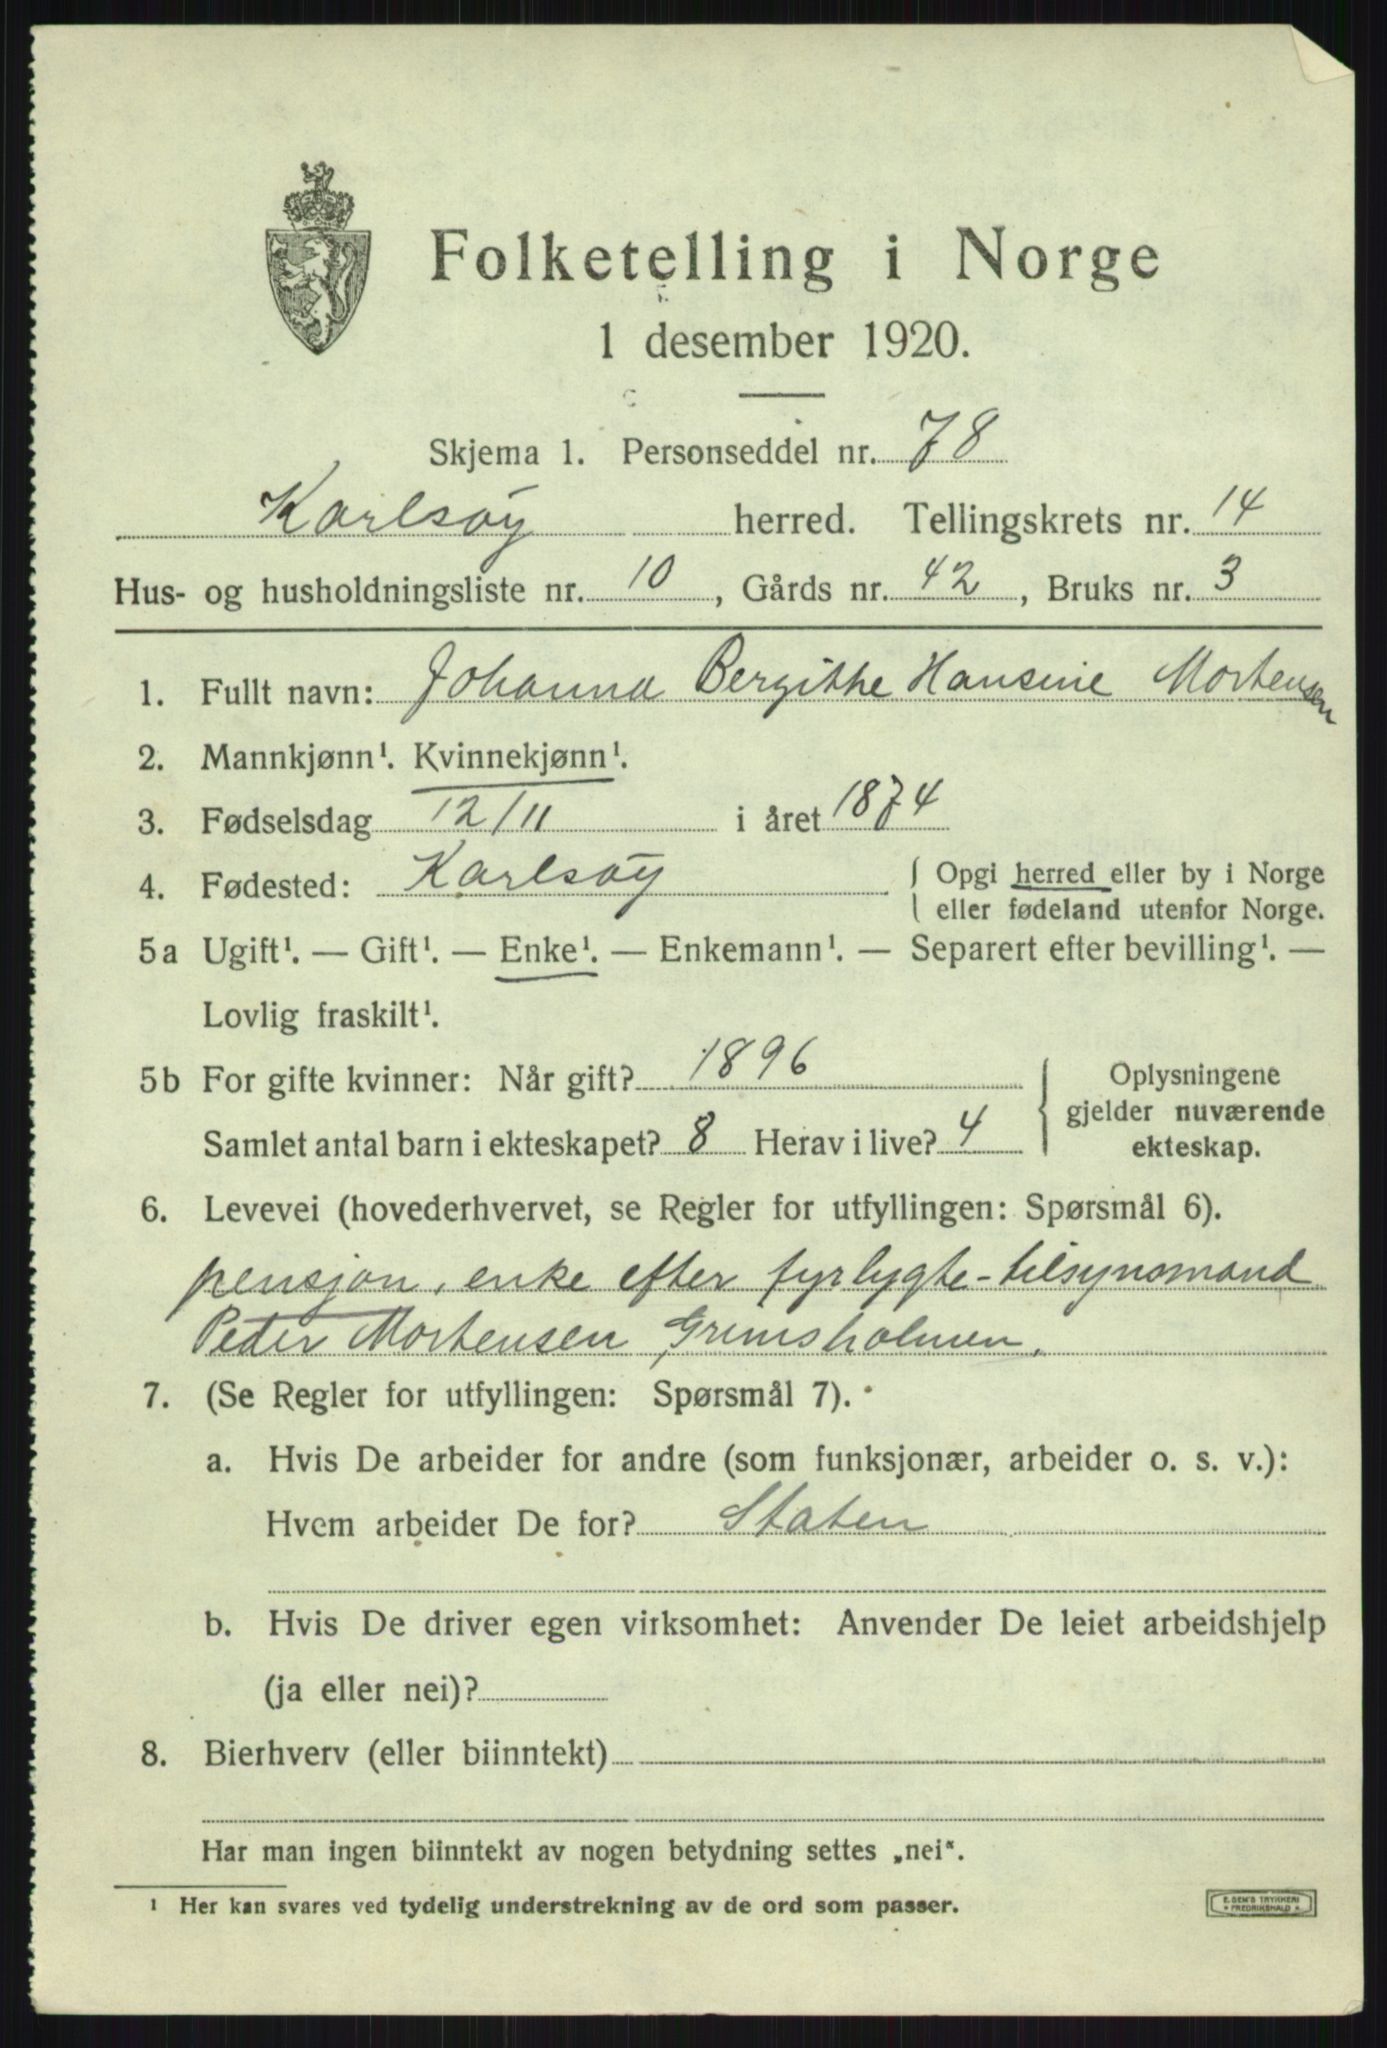 Folketelling i Norge
1 desember 1920.
Skjema 1. Personseddel nr. 78
Karlsøy herred. Tellingskrets nr. 14
Hus- og husholdningsliste nr. 10, Gårds nr. 42, Bruks nr. 3
1. Fullt navn: Johanna Bergithe Hansine Mortensen
2. Mannkjønn¹. Kvinnekjønn¹.
3. Fødselsdag 12/11 i året 1874
4. Fødested: Karlsøy { Opgi herred eller by i Norge
eller fødeland utenfor Norge.
5a Ugift¹. — Gift¹. — Enke¹. — Enkemann¹. — Separert efter bevilling¹. —
Lovlig fraskilt¹.
5b For gifte kvinner: Når gift? 1896
Samlet antal barn i ekteskapet? 8 Herav i live? 4
Oplysningene
gjelder nuværende
ekteskap.
6. Levevei (hovederhvervet, se Regler for utfyllingen: Spørsmål 6).
pensjon, enke efter fyrlygte-tilsynsmand
Peder Mortensen Grimsholmen.
7. (Se Regler for utfyllingen: Spørsmål 7).
a. Hvis De arbeider for andre (som funksjonær, arbeider o. s. v.):
Hvem arbeider De for? Staten
b. Hvis De driver egen virksomhet: Anvender De leiet arbeidshjelp
(ja eller nei)?
8. Bierhverv (eller biinntekt)
Har man ingen biinntekt av nogen betydning settes „nei“.
¹ Her kan svares ved tydelig understrekning av de ord som passer.
E. SEM'S TRYKKERI
FREDRIKSHALD